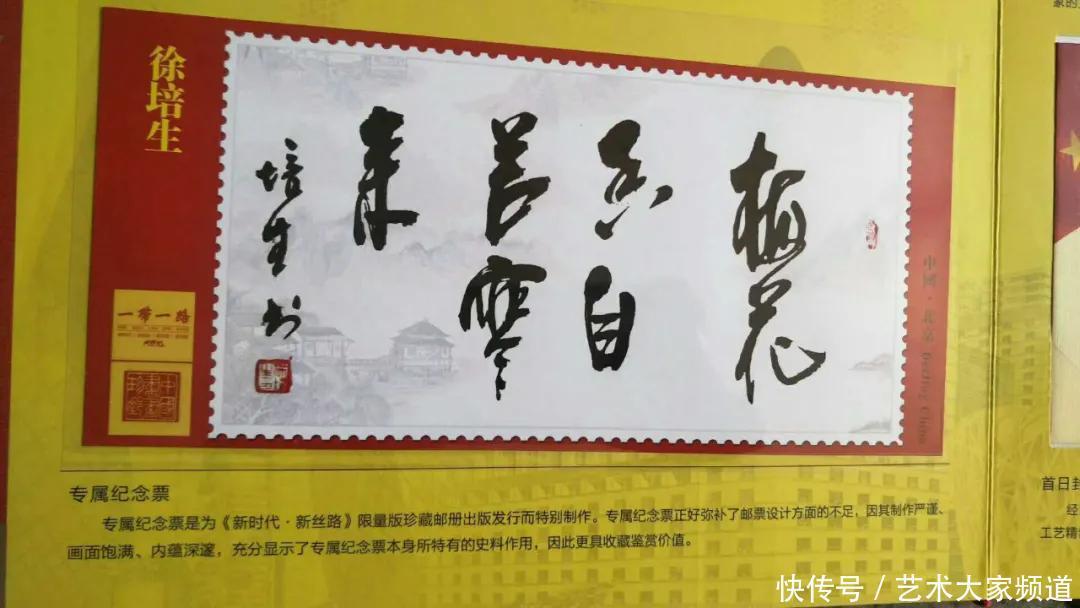 徐培生
梅花
香自
苦寒
来
培生书
中國·北京 Beijing China
一带一路
专属纪念票
专属纪念票是为《新时代·新丝路》限量版珍藏邮册出版发行而特别制作。专属纪念票正好弥补了邮票设计方面的不足，因其制作严谨、
画面饱满、内蕴深邃，充分显示了专属纪念票本身所特有的史料作用，因此更具收藏鉴赏价值。
首日封
经
工艺精
快传号 / 艺术大家频道